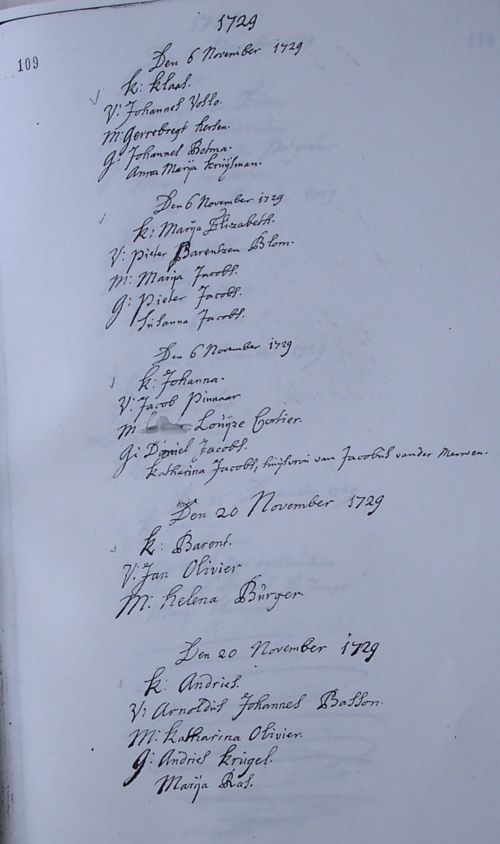 1729
109
Den 6 November 1729
k: klaas.
V: Johannes Vollo.
M: Gerrebregt herten.
G: Johannes Botma.
Anna Marija kruijsman.
Den 6 November 1729
k: Marija Elizabeth.
V: Pieter Barentzen Blom.
M: Marija Jacobs.
G: Pieter Jacobs.
Susanna Jacobs.
Den 6 November 1729
k: Johanna.
V: Jacob Pinnaar
M Louijze Cortier.
G: Daniel Jacobs.
katharina Jacobs, huijsvrou van Jacobus vander Merwen.
Den 20 November 1729
k: Barent.
V: Jan Olivier
M: helena Bùrger
Den 20 November 1729
k: Andries.
V: Arnoldus Johannes Basson.
M: katharina Olivier.
G: Andries krùgel.
Marija Ras.